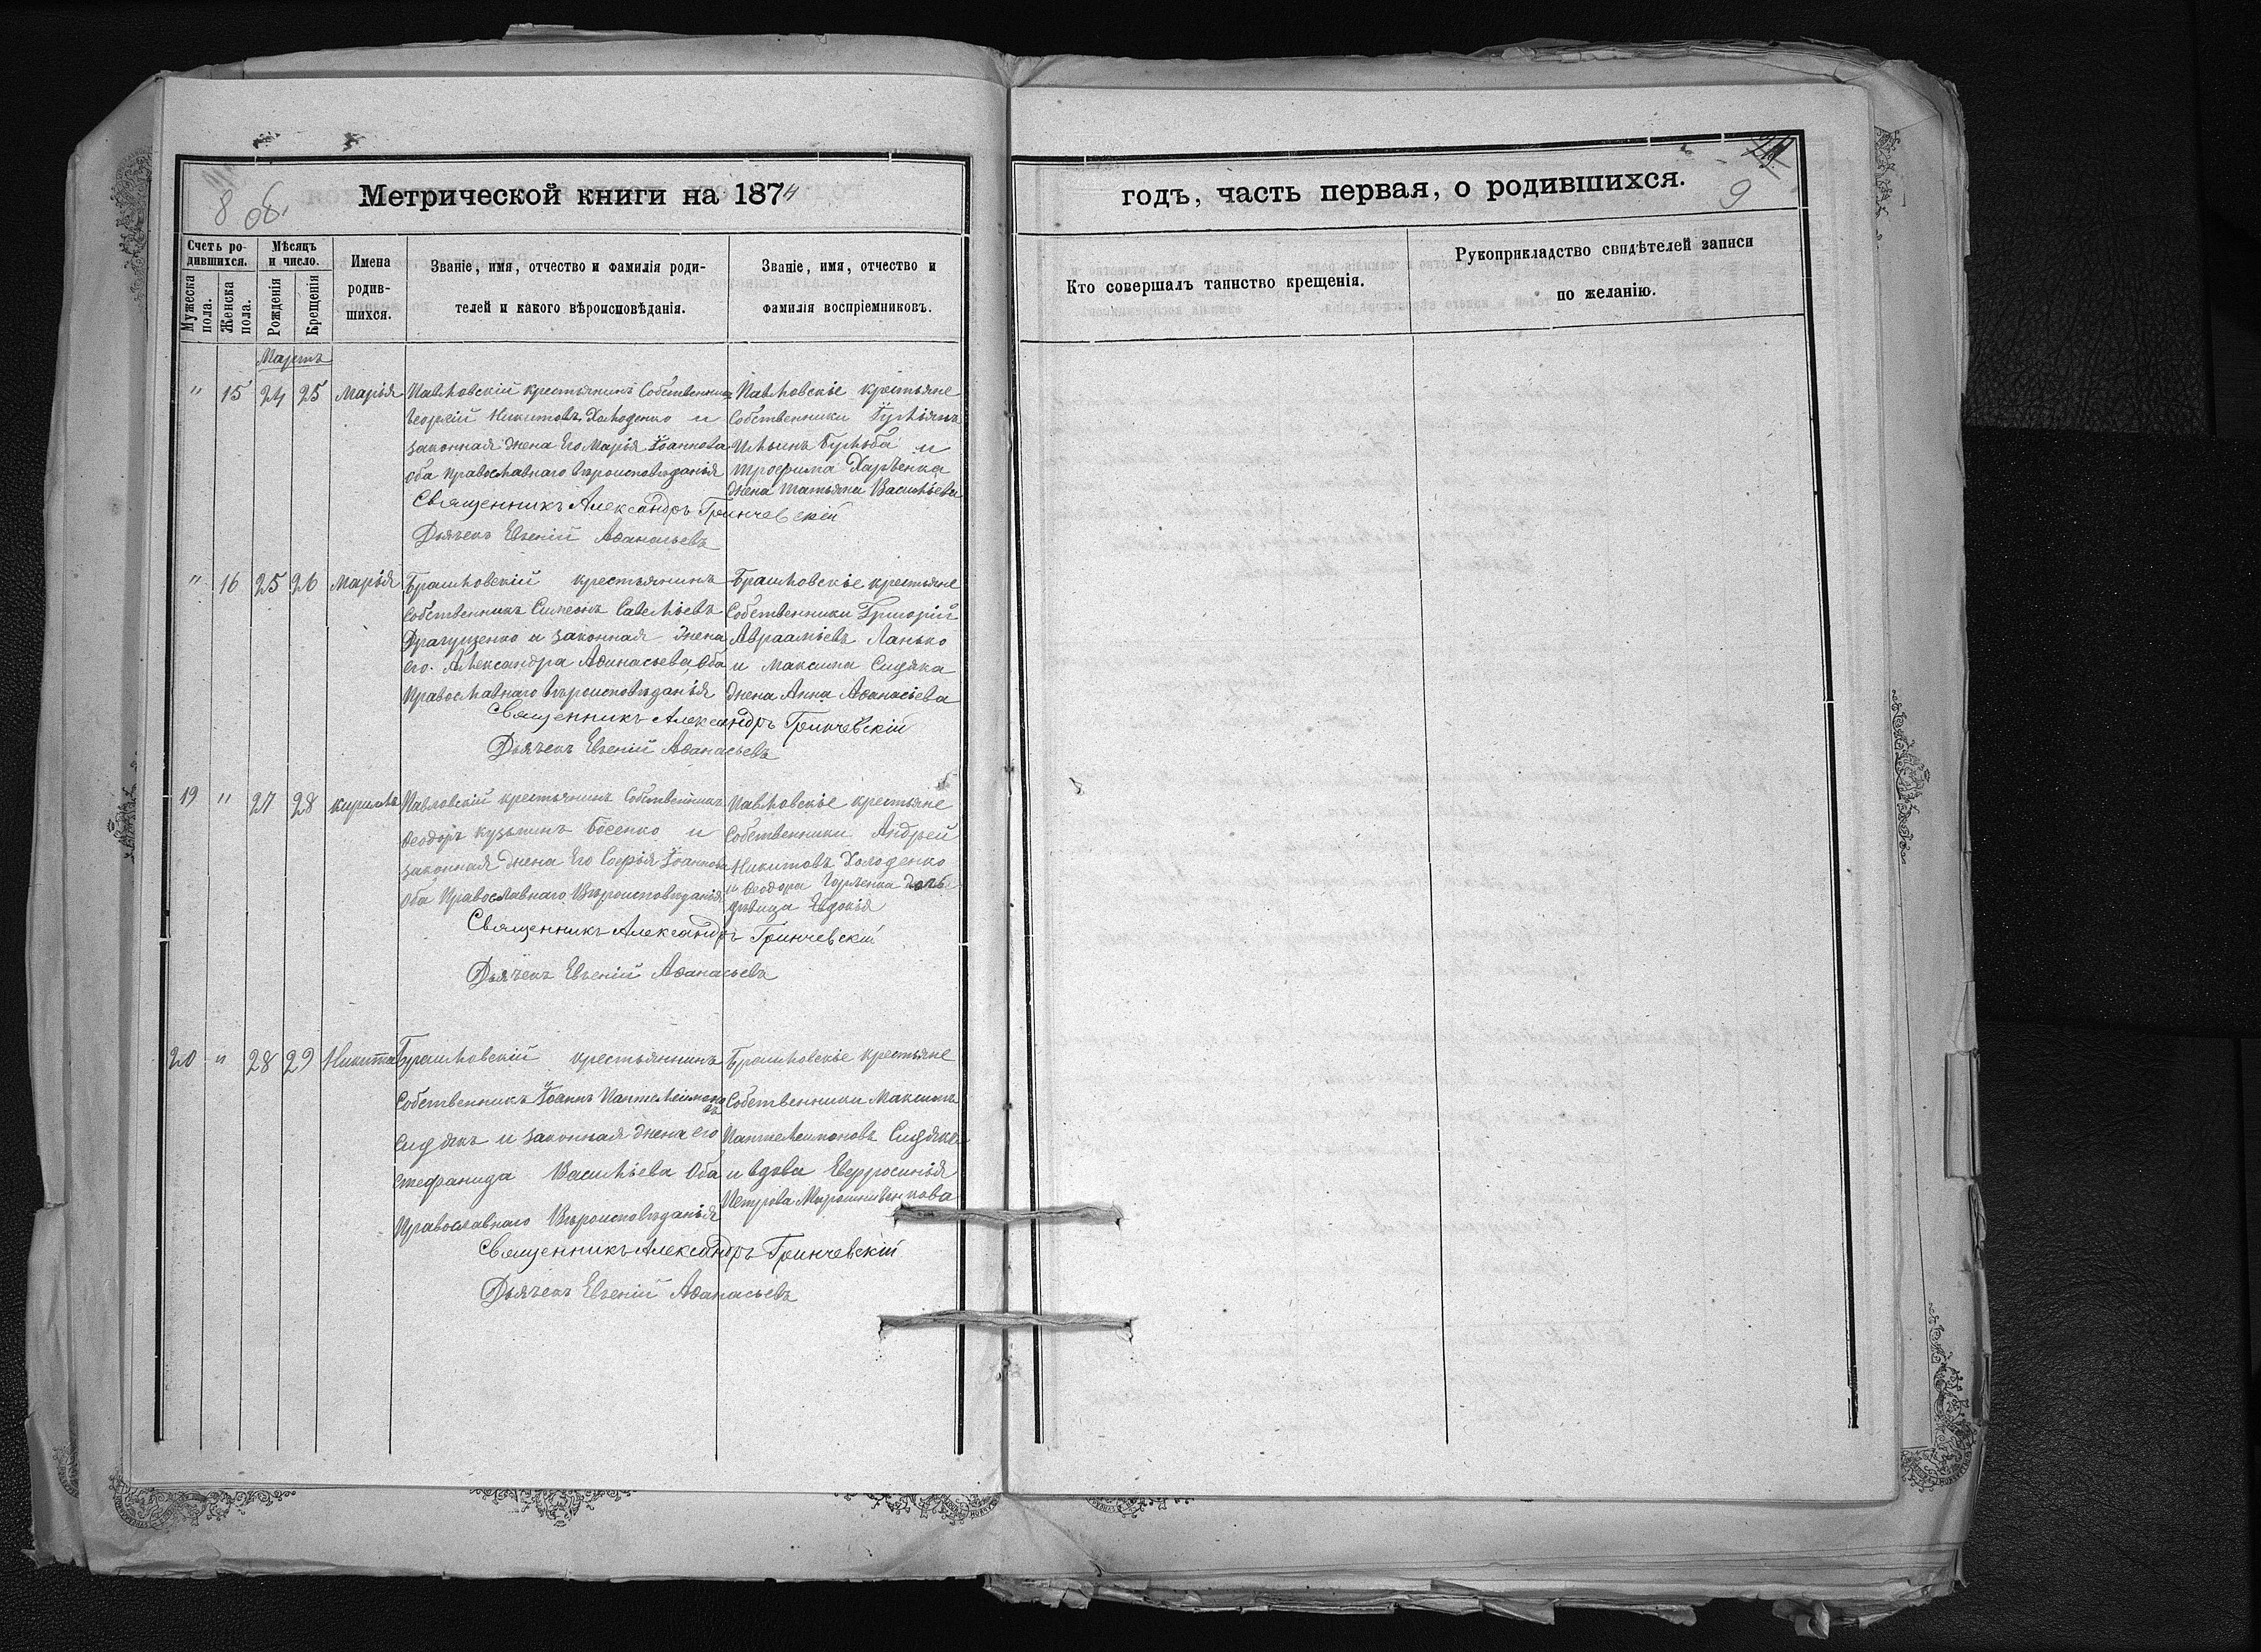 8 об.
Метрической книги на 1874
годъ, часть первая, о родившихся.
9
Счетъ ро-
дившихся.
Мѣсяцъ
и число.
Мужеска
пола.
Женска
пола.
Рожденія
Крещенія
Имена
родив-
шихся.
Званіе, имя, отчество и фамилія роди-
телей и какого вѣроисповѣданія.
Званіе, имя, отчество и
фамилія воспріемниковъ.
Кто совершалъ таинство крещенія.
Рукоприкладство свидѣтелей записи
по желанію.
Мартъ
" 15 24 25 Марія
Павловскій крестьянинъ Собственникъ
Георгій Никитовъ Холоденко и
законная жена Его Марія Іоаннова
оба православнаго вѣроисповѣданія
Павловскіе крестьяне
Собственники
Ильинъ Бульба и
Трофима Харченка
жена Татьяна Васильева
Священникъ Александръ Гринчевскій
Дьячекъ Евгеній Аѳанасьевъ
" 16 25 26 Марія
Брашловскій крестьянинъ
Собственникъ Симеонъ Савельевъ
и законная жена
его Александра Аѳанасьева, оба
Православнаго вѣроисповѣданія
Брашловскіе крестьяне
Собственники Григорій
Авраамьевъ Ланько
и Максима Сидяка
жена Анна Аѳанасіева
Священникъ Александръ Гринчевскій
Дьячекъ Евгеній Аѳанасьевъ
19 " 27 28 Кириллъ
Павловскій крестьянинъ Собственникъ
Ѳеодоръ Кузьминъ Босенко и
законная жена Его Софія Іоаннова
оба Православнаго Вѣроисповѣданія
Павловскіе крестьяне
Собственники Андрей
Никитовъ Холоденко
и Ѳеодора дочь
дѣвица Евдокія
Священникъ Александръ Гринчевскій
Дьячекъ Евгеній Аѳанасьевъ
20 " 28 29 Никита
Брашловскій крестьянинъ
Собственникъ Іоаннъ Пантелеимоновъ
Сидякъ и законная жена его
Стефанида Васильева Оба
Православнаго Вѣроисповѣданія
Брашловскіе крестьяне
Собственники Максимъ
Пантелеимоновъ Сидякъ
и вдова Евфросинія
Петрова Мирошниченкова
Священникъ Александръ Гринчевскій
Дьячекъ Евгеній Аѳанасьевъ